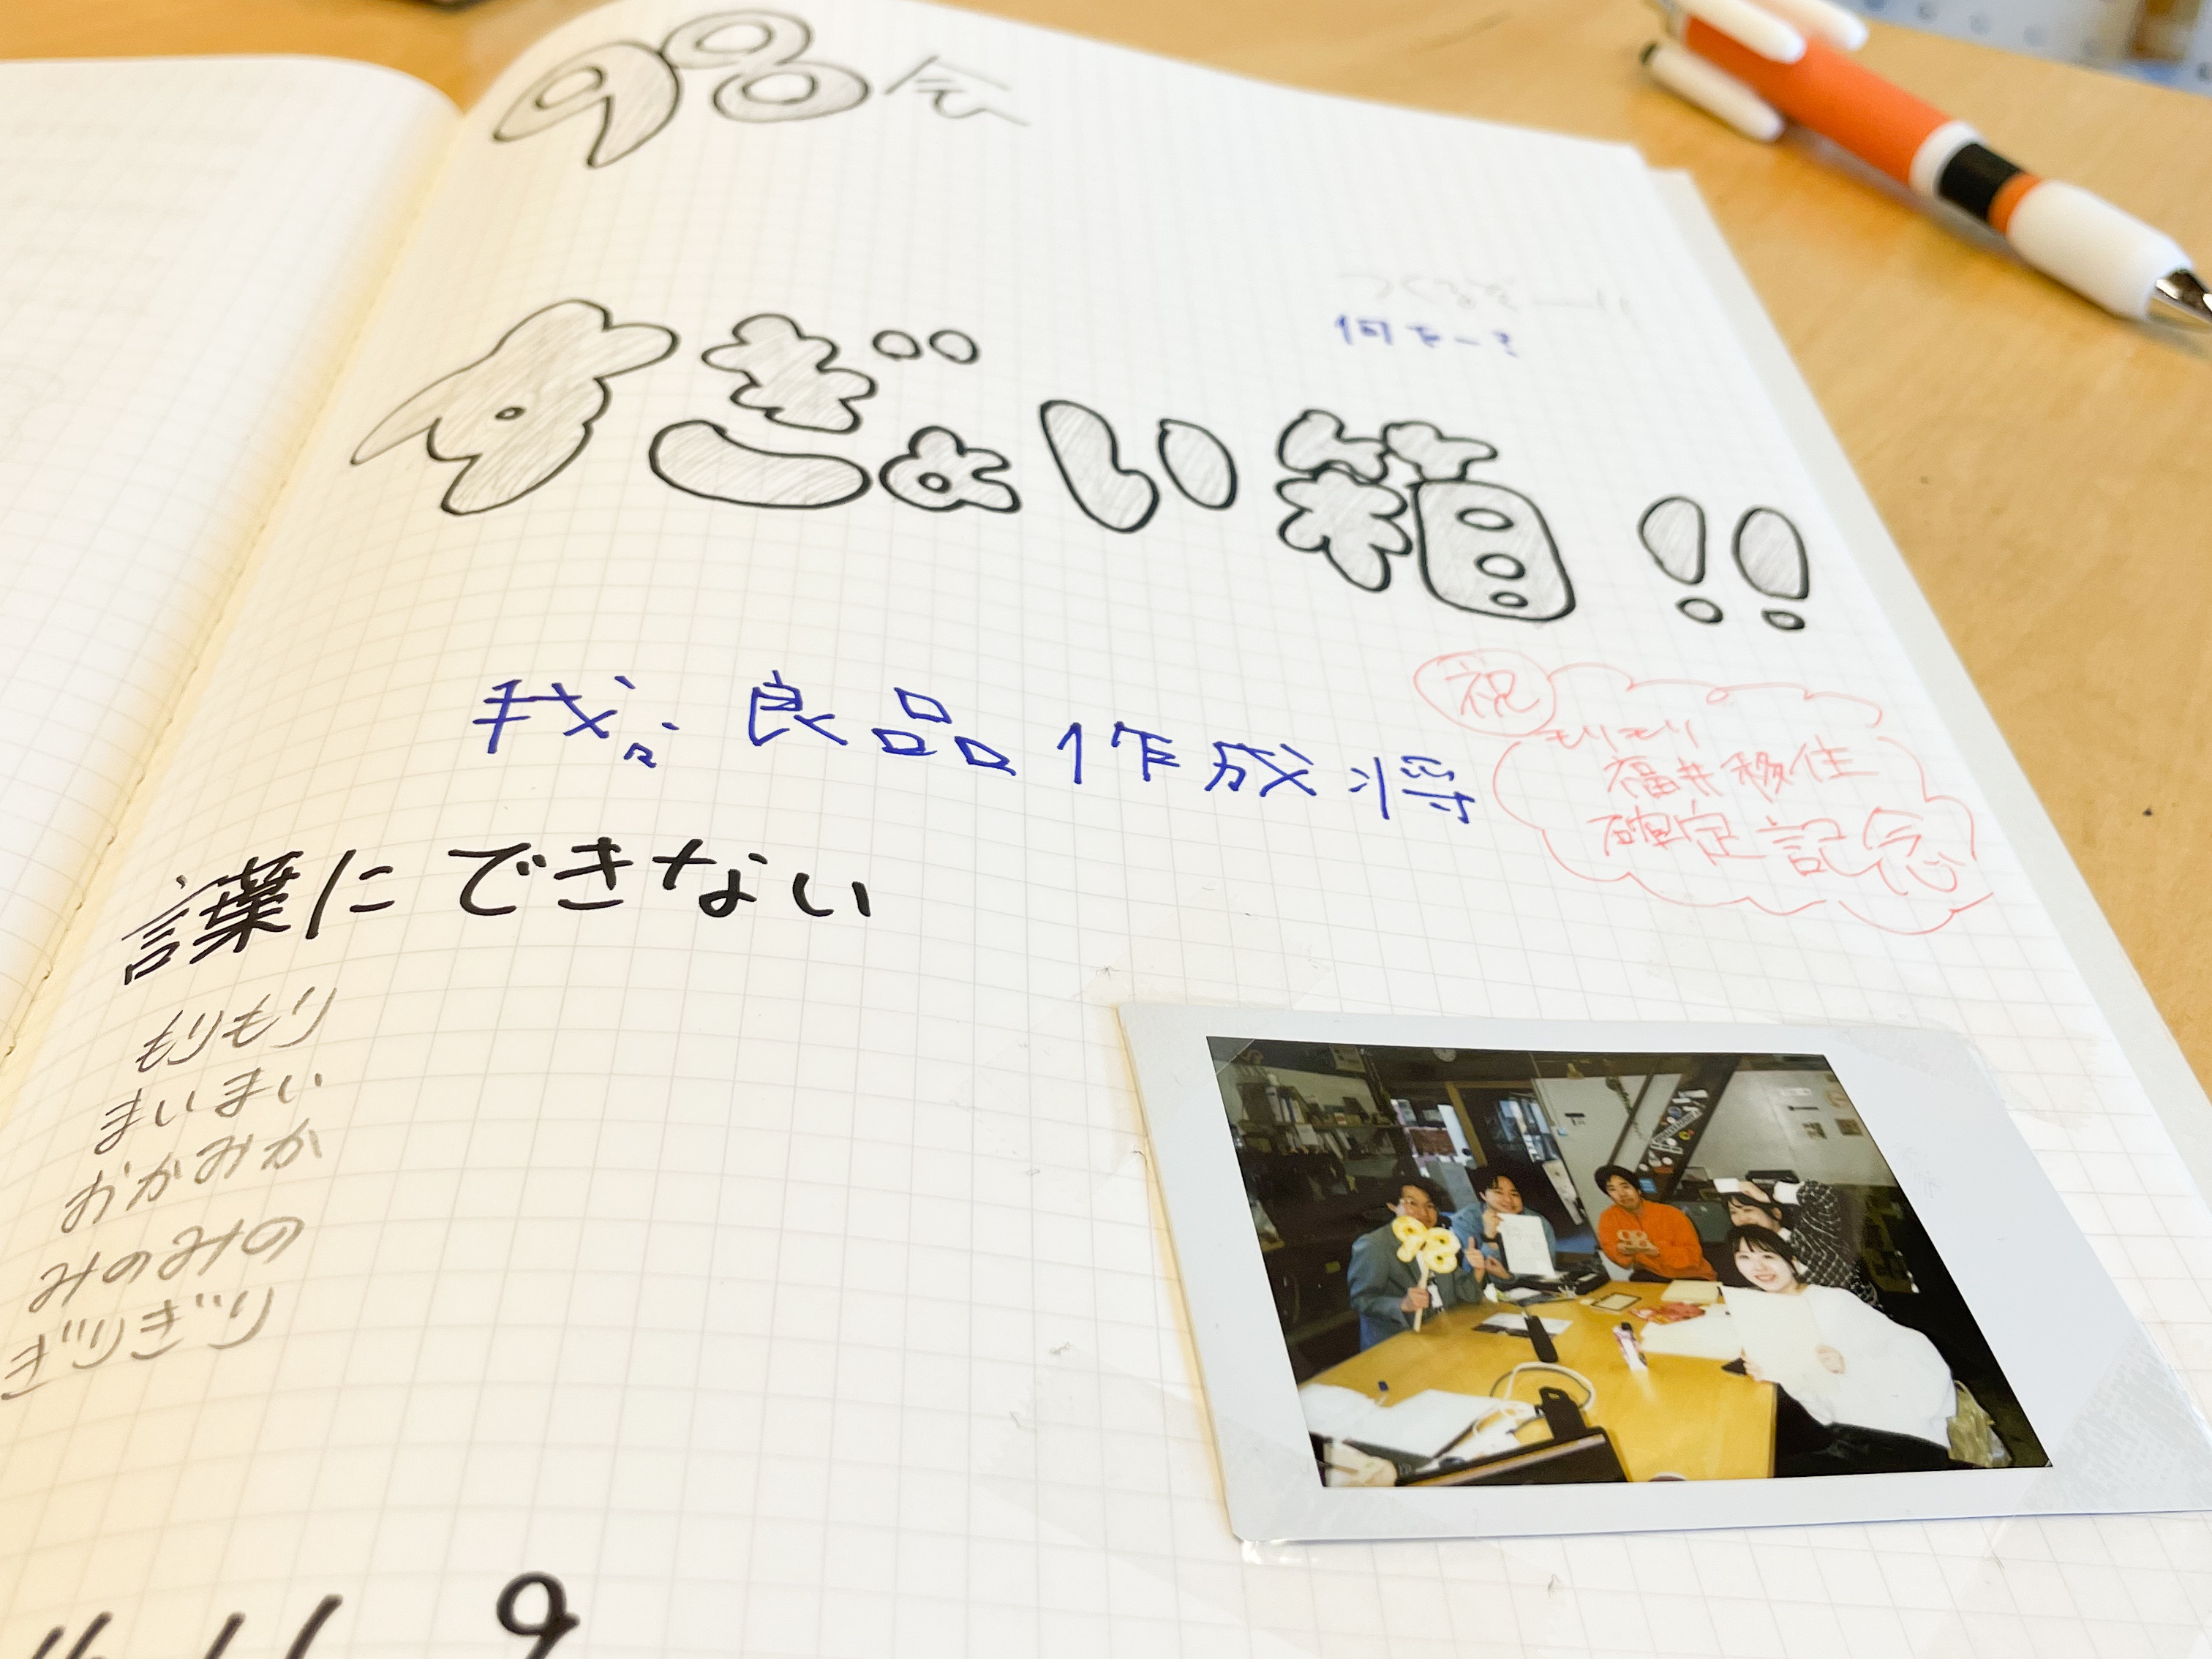 98会
つくるぞー!!
何をー?
すぎょい箱!!
我々良品作成将
祝
もりもり
福井移住
確定記念
言葉にできない
もりもり
まいまい
おかみか
みのみの
ぎりぎり